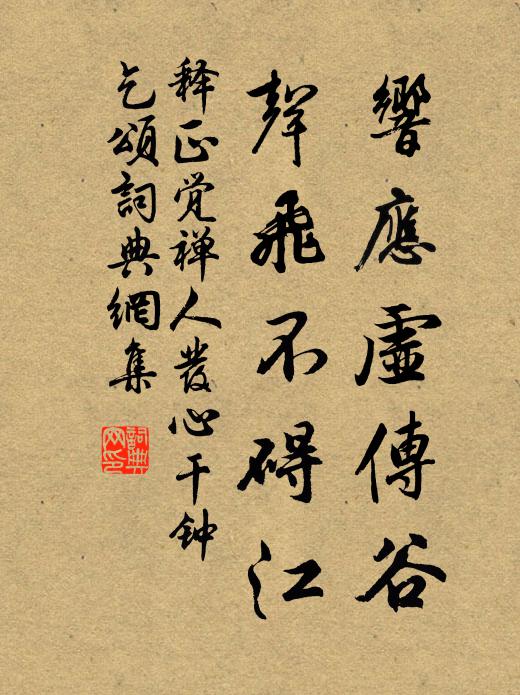 響應虛傳谷
聲飛不碍江
释正覺禅人發心干钟
乞頌詞典網集
詞典網印